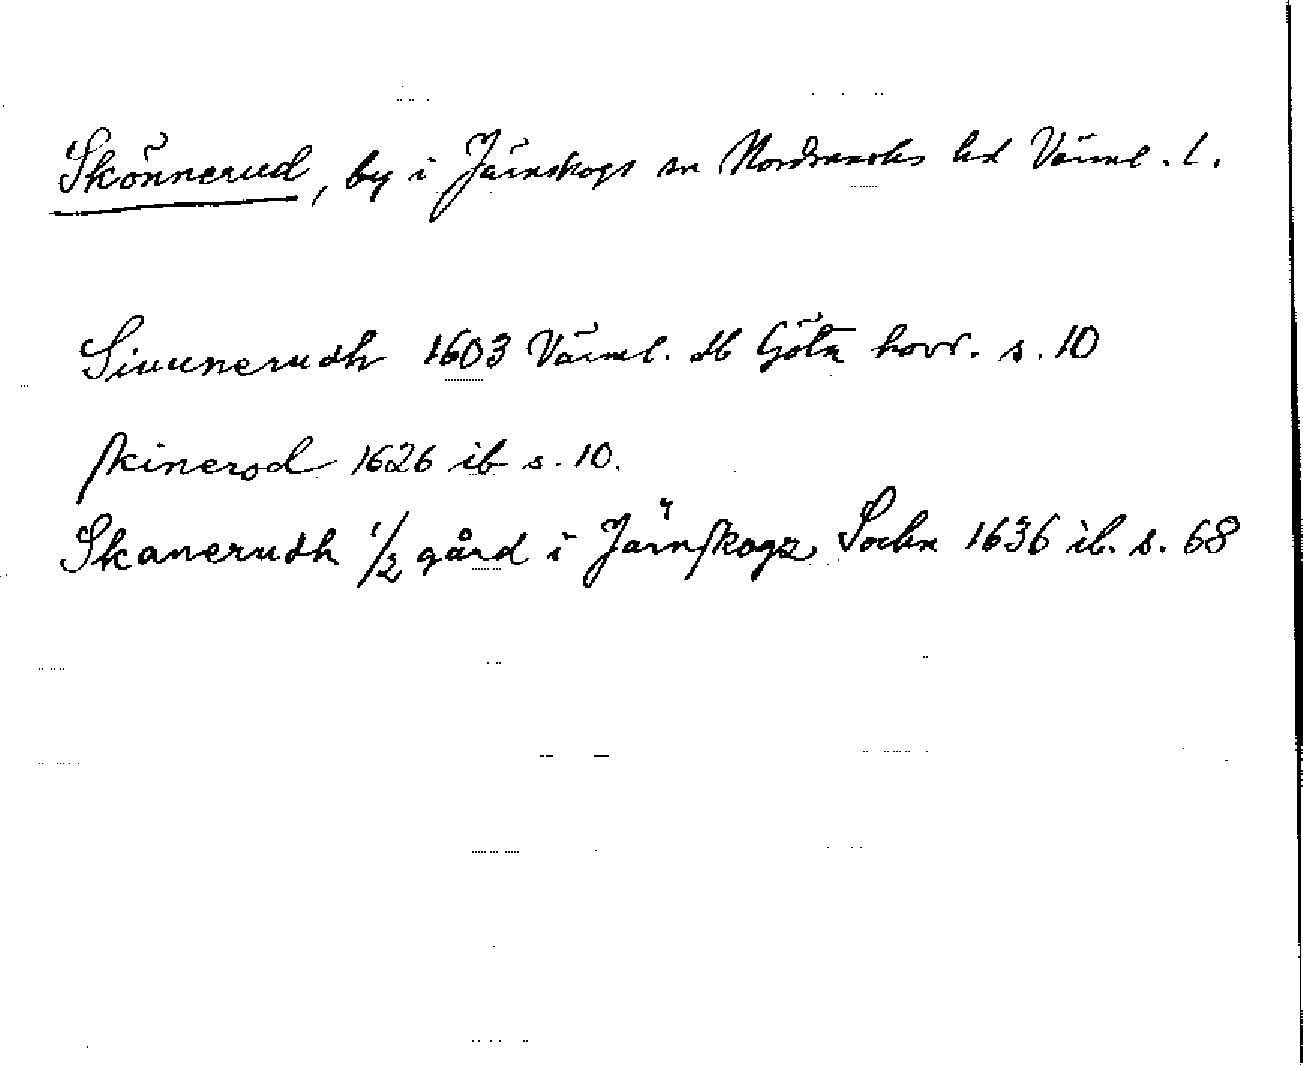 Skönnerud, by i Järnskogs sn Nordmarks hd Värml. l.
Siuunerudh 1603 Värml. db Göta hovr. s. 10
skinerod 1626 ib s. 10.
Skanerudh 1/2 gård i Järnskogz Sochn 1636 ib. s. 68